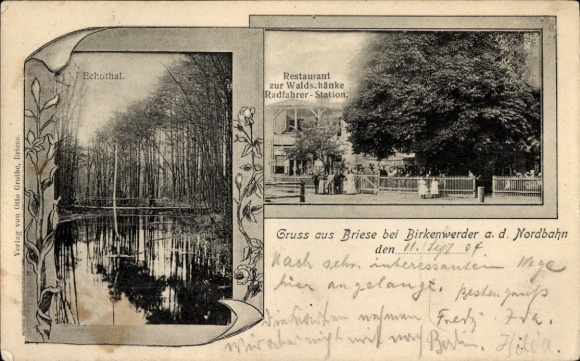 Echothal.
Restaurant
zur Waldschänke
Radfahrer-Station.
Verlag von Otto Grothe, Briese.
Gruss aus Briese bei Birkenwerder a. d. Nordbahn
den 11. Sept 04
Nach sehr interessanten Wege
hier angelangt. Besten gruß
Fredy Ida.
Wir aber nicht mit nach Berlin. Hilda.